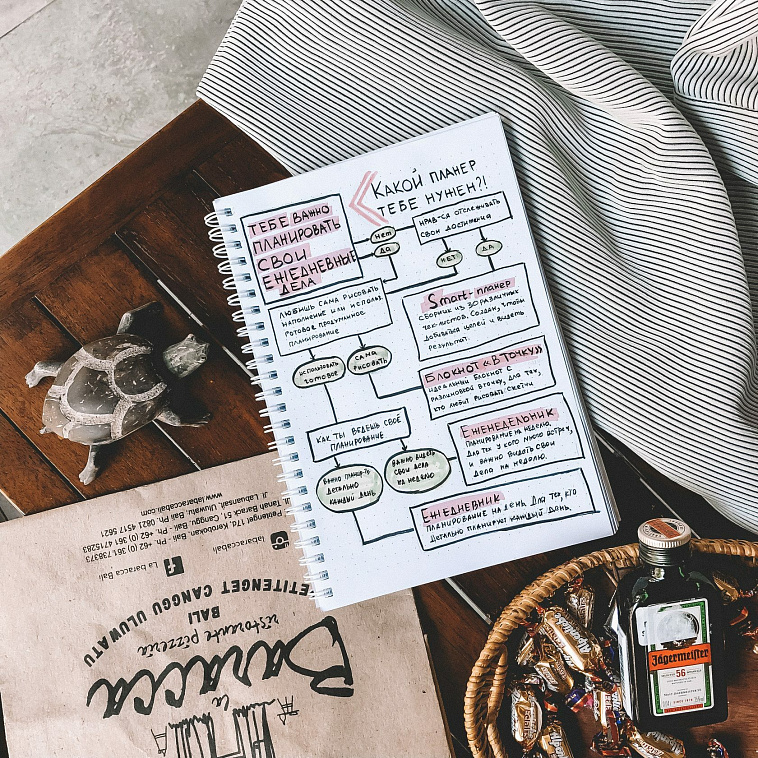 Какой планер
тебе нужен?!
Тебе важно
планировать
свои
ежедневные
дела
нет
да
нрав-ся отслеживать
свои достижения
нет
да
Любишь сама рисовать
наполнение или использ.
готовое продуманное
планирование
Smart-планер
сборник из 30 различных
чек-листов. Создан, чтобы
добиваться целей и видеть
результат.
использовать
готовое
сама
рисовать
Блокнот «В точку»
идеальный блокнот с
разлиновкой в точку, для тех,
кто любит рисовать скетчи
Как ты ведёшь своё
планирование
Еженедельник
Планирование на неделю.
Для тех у кого много встреч,
и важно видеть свои
дела на неделю.
важно план-ть
детально
каждый день
важно видеть
свои дела
на неделю
Ежедневник
планирование на день. Для тех, кто
детально планирует каждый день.
la
Baracca
ristorante pizzeria
BALI
PETITENGET CANGGU ULUWATU
La baracca Bali
labaraccabali
Petitenget 17d Kerobokan, Bali - Ph:
Tanah Barak 51 Canggu, Bali - Ph:
Jl. Labuansait, Uluwatu, Bali - Ph: 0821 4517 5621
www.labaraccabali.com
Jägermeister
56